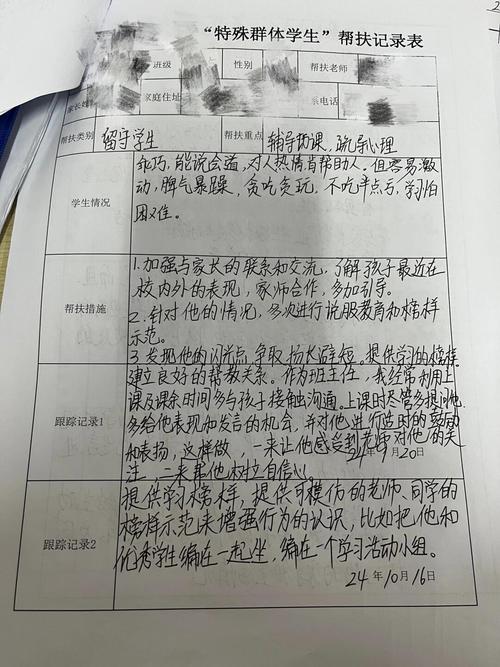 “特殊群体学生”帮扶记录表
班级 性别 帮扶老师
家长姓 家庭住址 系电话
帮扶类别 留守学生 帮扶重点 辅导功课,疏导心理
学生情况
乖巧,能说会道,对人热情肯帮助人。但容易激
动,脾气暴躁,贪吃贪玩,不吃半点亏,学习怕
困难。
帮扶措施
1.加强与家长的联系和交流,了解孩子最近在
校内外的表现,家师合作,多加引导。
2.针对他的情况,多次进行说服教育和榜样
示范。
3.发现他的闪光点,争取扬长避短。提供学习的榜样
跟踪记录1
建立良好的帮教关系。作为班主任,我经常利用上
课及课余时间多与孩子接触沟通。上课时尽管多提问他
多给他表现和发言的机会,并对他进行适时的鼓励
和表扬,这样做,一来让他感受到老师对他的关
注,二来帮他树立自信心。
24年9月20日
跟踪记录2
提供学习榜样,提供可模仿的老师、同学的
榜样示范来增强行为的认识,比如把他和
优秀学生编在一起坐,编在一个学习活动小组。
24年10月16日